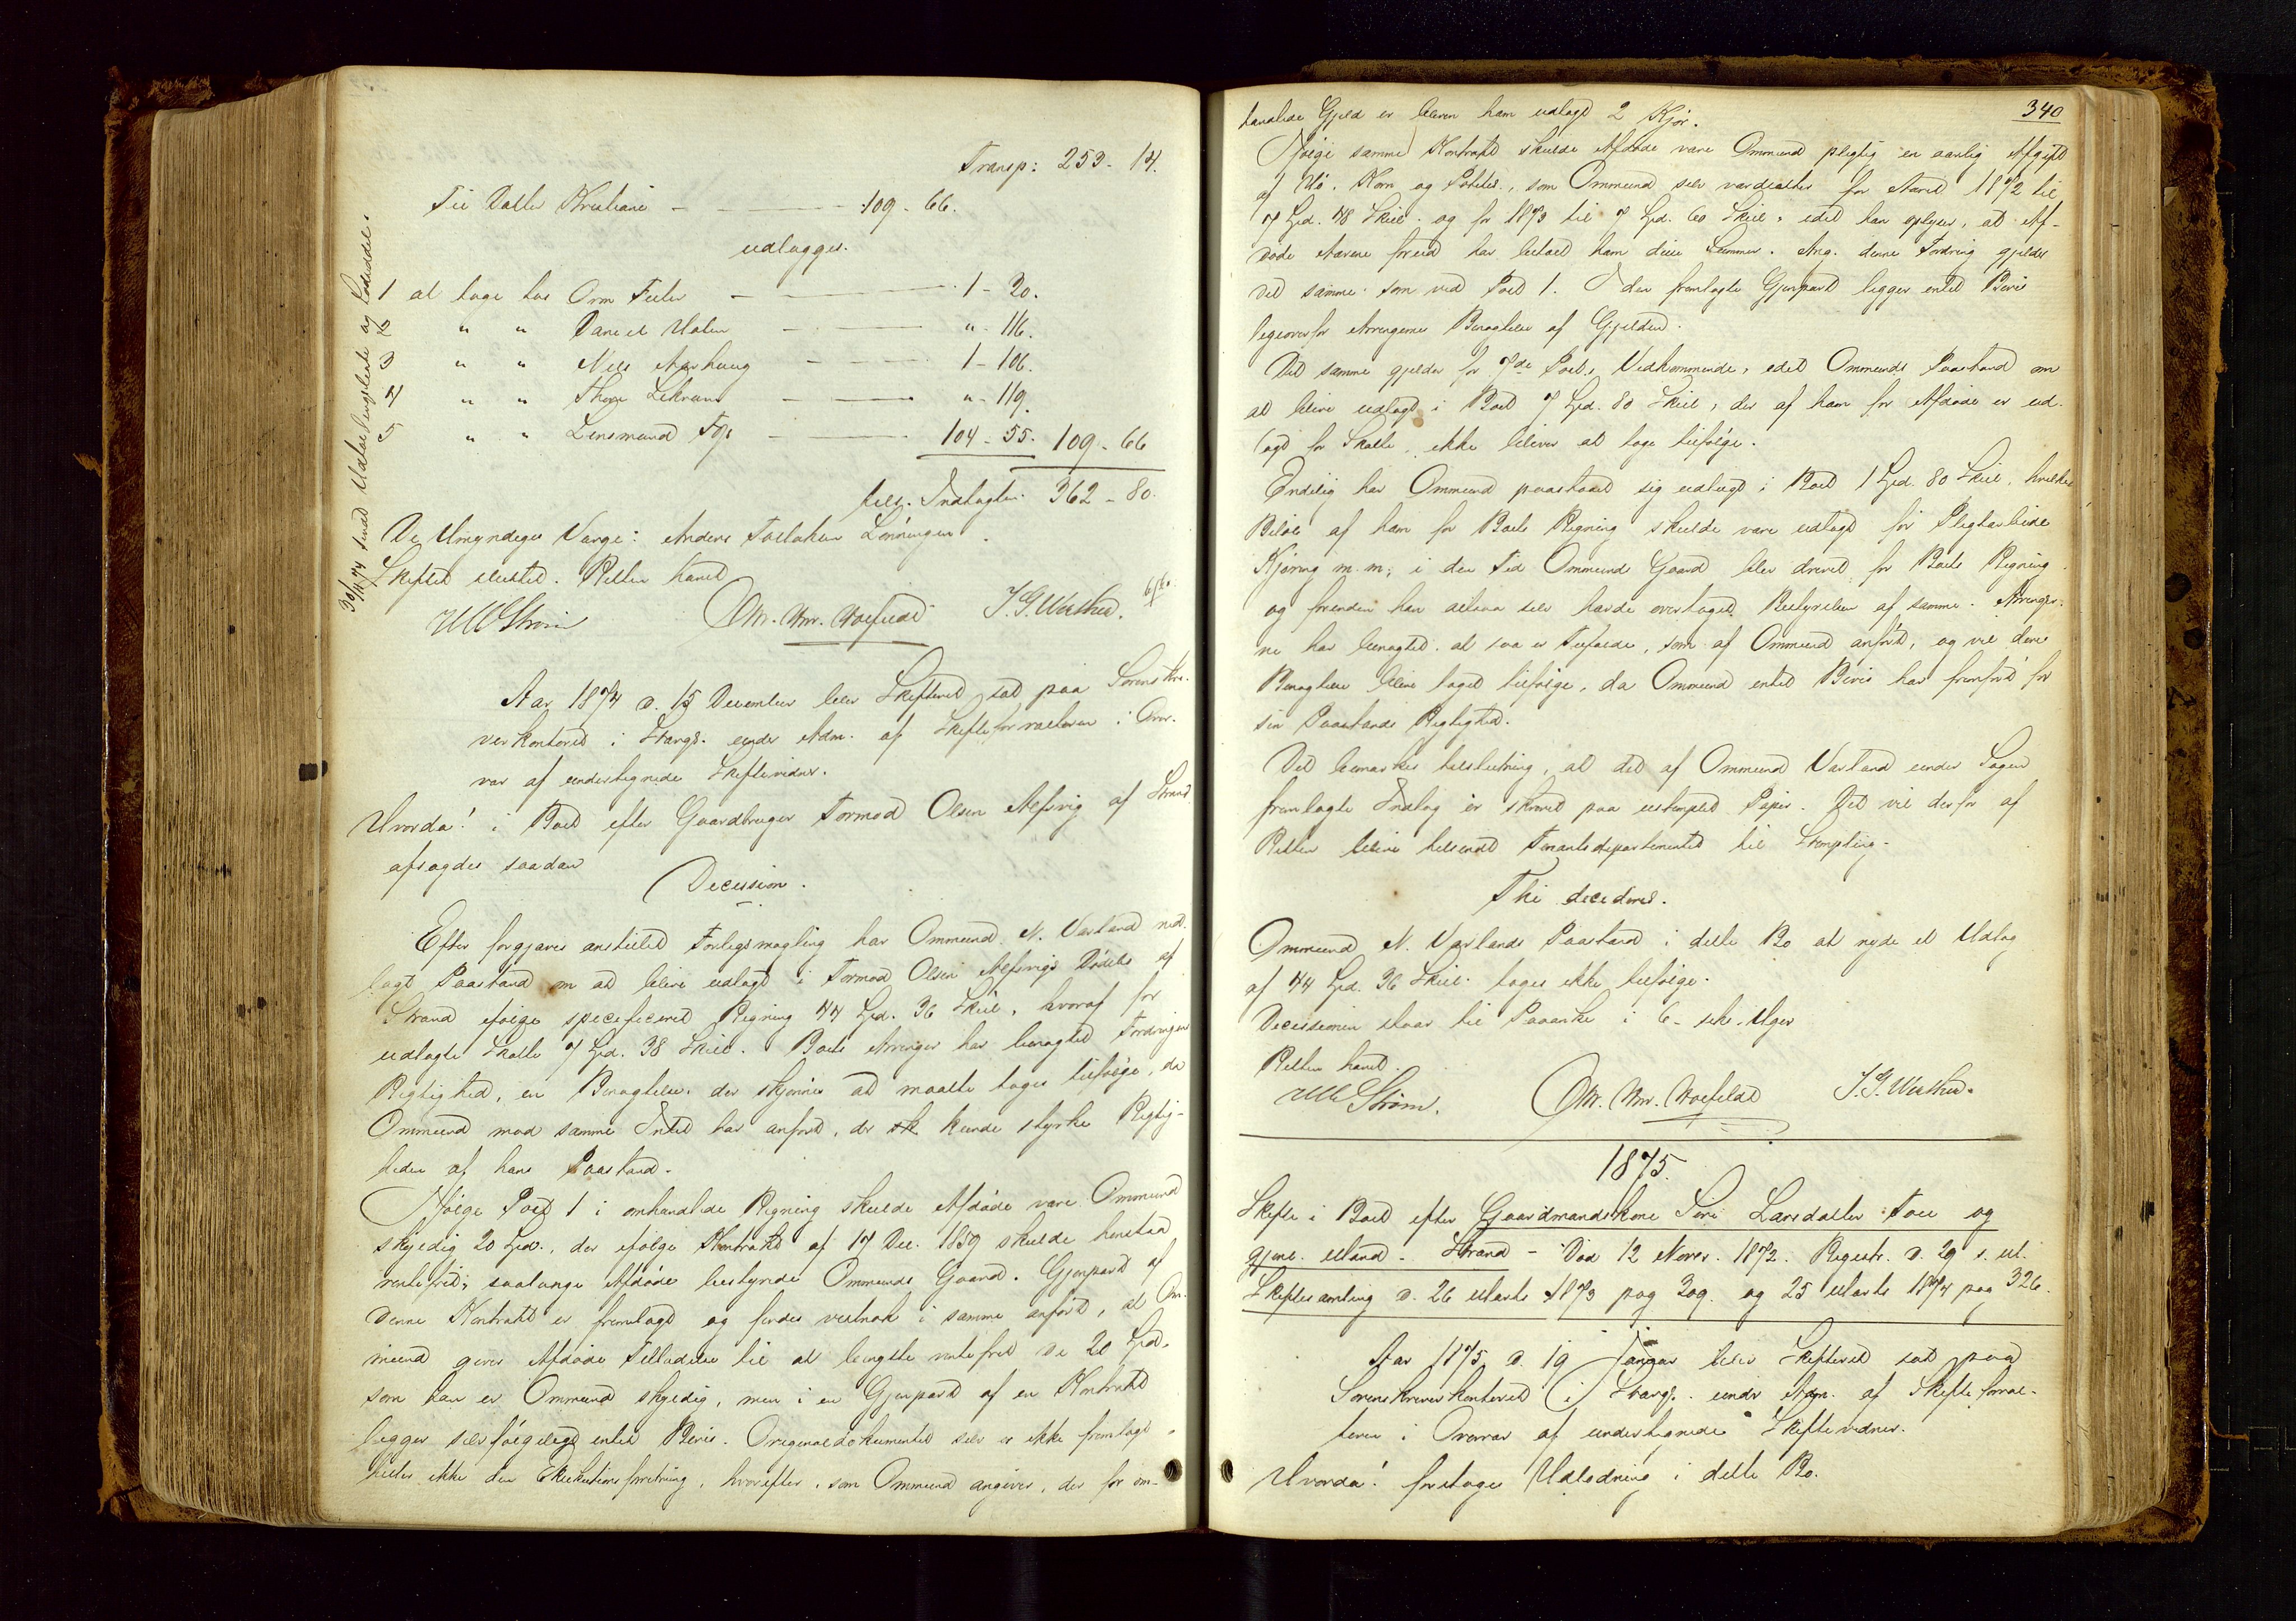 Transp: 253 - 14.
Til Datter Kristiane - 109 - 66.
udlægges.
1 at tage hos Orm Tveter - 1 - 20.
2 " " Daniel - " - 116.
3 " " Niels Aarhaug - 1 - 106.
4 " " Thore Lekvam - " - 119.
5 " " Lensmand - 104 - 55. 109 - 66
tils. Indtægter. 362 - 80.
De Umyndiges Værge: Anders Torlaksen Lønningen.
Skiftet sluttet. Retten hævet
30/11 74 sendt
WWStrøm
J. G. Wisthus.
Aar 1874 d. 15 December blev Skifteret sat paa Sorenskri-
verkontoret i Stavgr. under Adm. af Skifteforvalteren i Over-
vær af undertegnede Skiftevidner.
Hvorda! i Boet efter Gaardbruger Tormod Olsen Alsvig af Strand
afsagdes saadan
Decission.
Efter forgjæves anstillet Forligsmægling har Ommund N. Vastand ned-
lagt Paastand om at blive udlagt i Tormod Olsen Alsvigs Dødsbo af
Strand ifølge specificeret Regning 44 Spd. 36 Skil., hvoraf for
udlagte Skatte 7 Spd. 38 Skil. Boets Arvinger har benægtet Fordringens
Rigtighed, en Benægtelse, der skjønnes at maatte tages tilfølge, da
Ommund mod samme Intet har anført, der kunde styrke Rigtig-
heden af hans Paastand.
Ifølge Post 1 i omhandlede Regning skulde Afdøde være Ommund
skyldig 20 Spd., der ifølge Kontrakt af 14 Dec. 1859 skulde henstaa
rentefrit, saalænge Afdøde bestyrede Ommunds Gaard. Gjenpart af
denne Kontrakt er fremlagt og findes vistnok i samme anført, at Om-
mund giver Afdøde Tilladelse til at benytte rentefrit de 20 Spd.
som han er Ommund skyldig, men i en Gjenpart af en Kontrakt
ligger selvfølgeligt intet Bevis. Originaldokumentet selv er ikke fremlagt,
heller ikke den Exekutionsforretning, hvorefter, som Ommund angiver, der for om-
340
handlede Gjæld er bleven ham udlagt 2 Kjør.
Ifølge samme Kontrakt skulde Afdøde være Ommund pligtig en aarlig Afgift
af Hø, Korn og Poteter, som Ommund selv værdsætter for Aaret 1872 til
7 Spd. 48 Skil. og for 1873 til 7 Spd. 60 Skil., idet han oplyser, at Af-
døde Aarene forud har betalt ham disse Summer. Ang. denne Fordring gjælder
det samme som ved Post 1. I den fremlagte Gjenpart ligger intet Bevis
ligeoverfor Arvingernes Benægtelse af Gjælden.
Det samme gjælder for 7de Posts Vedkommende, idet Ommunds Paastand om
at blive udlagt i Boet 7 Spd. 80 Skil., der af ham for Afdøde er ud-
lagt for Skatte, ikke bliver at tage tilfølge.
Endelig har Ommund paastaaet sig udlagt i Boet 1 Spd. 80 Skil. hvilket
Beløb af ham for Boets Regning skulde være udlagt for Pligtarbeide
Kjøring m. m., i den Tid Ommunds Gaard blev drevet for Boets Regning
og forinden han altsaa selv havde overtaget Bestyrelsen af samme. Arvinger-
ne har benægtet, at saa er Tilfælde, som af Ommund anført, og vil deres
Benægtelse blive taget tilfølge, da Ommund intet Bevis har fremført for
sin Paastands Rigtighed.
Det bemærkes tilslutning, at det af Ommund Vastand under Sagen
fremlagte Indlæg er skrevet paa ustemplet Papir. Det vil derfor af
Retten blive tilsendt Finantsdepartementet til Stempling.
Thi decideres.
Ommund N. Vastands Paastand i dette Bo at nyde et Udlæg
af 44 Spd. 36 Skil. tages ikke tilfølge.
Decissionen staar til Paaanke i 6 - seks - Uger
Retten hævet.
WWStrøm.
J. G. Wisthus.
1875.
Skifte i Boet efter Gaardmandskone Siri Larsdatter Tou og
gjenl. Mand. Strand - Død 12 Novbr. 1872. Registr. d. 29 s. M.
Skiftesamling d. 26 Marts 1873 pag 309. og 25 Marts 1874 pag 326.
Aar 1875 d. 19 Januar blev Skifteret sat paa
Sorenskriverkontoret i Stavgr. under Adm. af Skifteforval-
teren i Overvær af undertegnede Skiftevidner.
Hvorda! foretoges Udlodning i dette Bo.